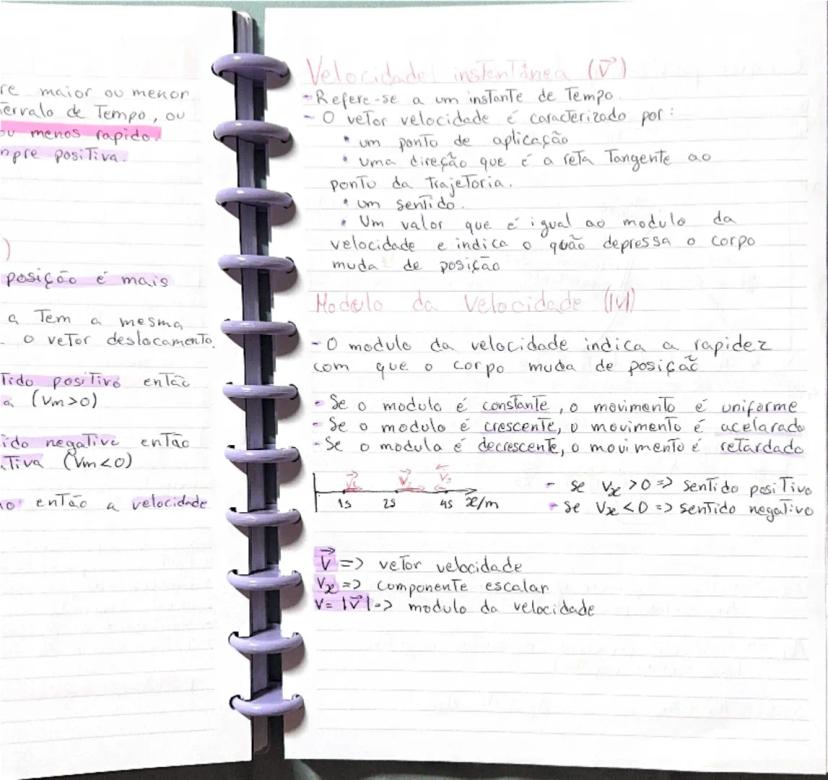 re maior ou menor
tervalo de Tempo, ou
ou menos rapido.
mpre positiva.
)
posição é mais
a Tem a mesma
o vetor deslocamento.
tido positivo então
a (Vm>0)
ido negativo então
ativa (Vm<0)
então a velocidade
Velocidade instantânea (V⃗)
- Refere-se a um instante de Tempo.
- O vetor velocidade é caracterizado por:
• um ponto de aplicação
• uma direção que é a reta Tangente ao
ponto da trajetoria.
• um sentido.
• Um valor que é igual ao modulo da
velocidade e indica o quão depressa o corpo
muda de posição
Modulo da Velocidade (|V|)
- O modulo da velocidade indica a rapidez
com que o corpo muda de posição
- Se o modulo é constante, o movimento é uniforme
- Se o modulo é crescente, o movimento é acelarado
- Se o modula é decrescente, o movimento é retardado
1s 2s 4s x/m
- se Vx >0 => sentido positivo
- se Vx <0 => sentido negativo
V⃗ => vetor velocidade
Vx => componente escalar
V= |V⃗| => modulo da velocidade